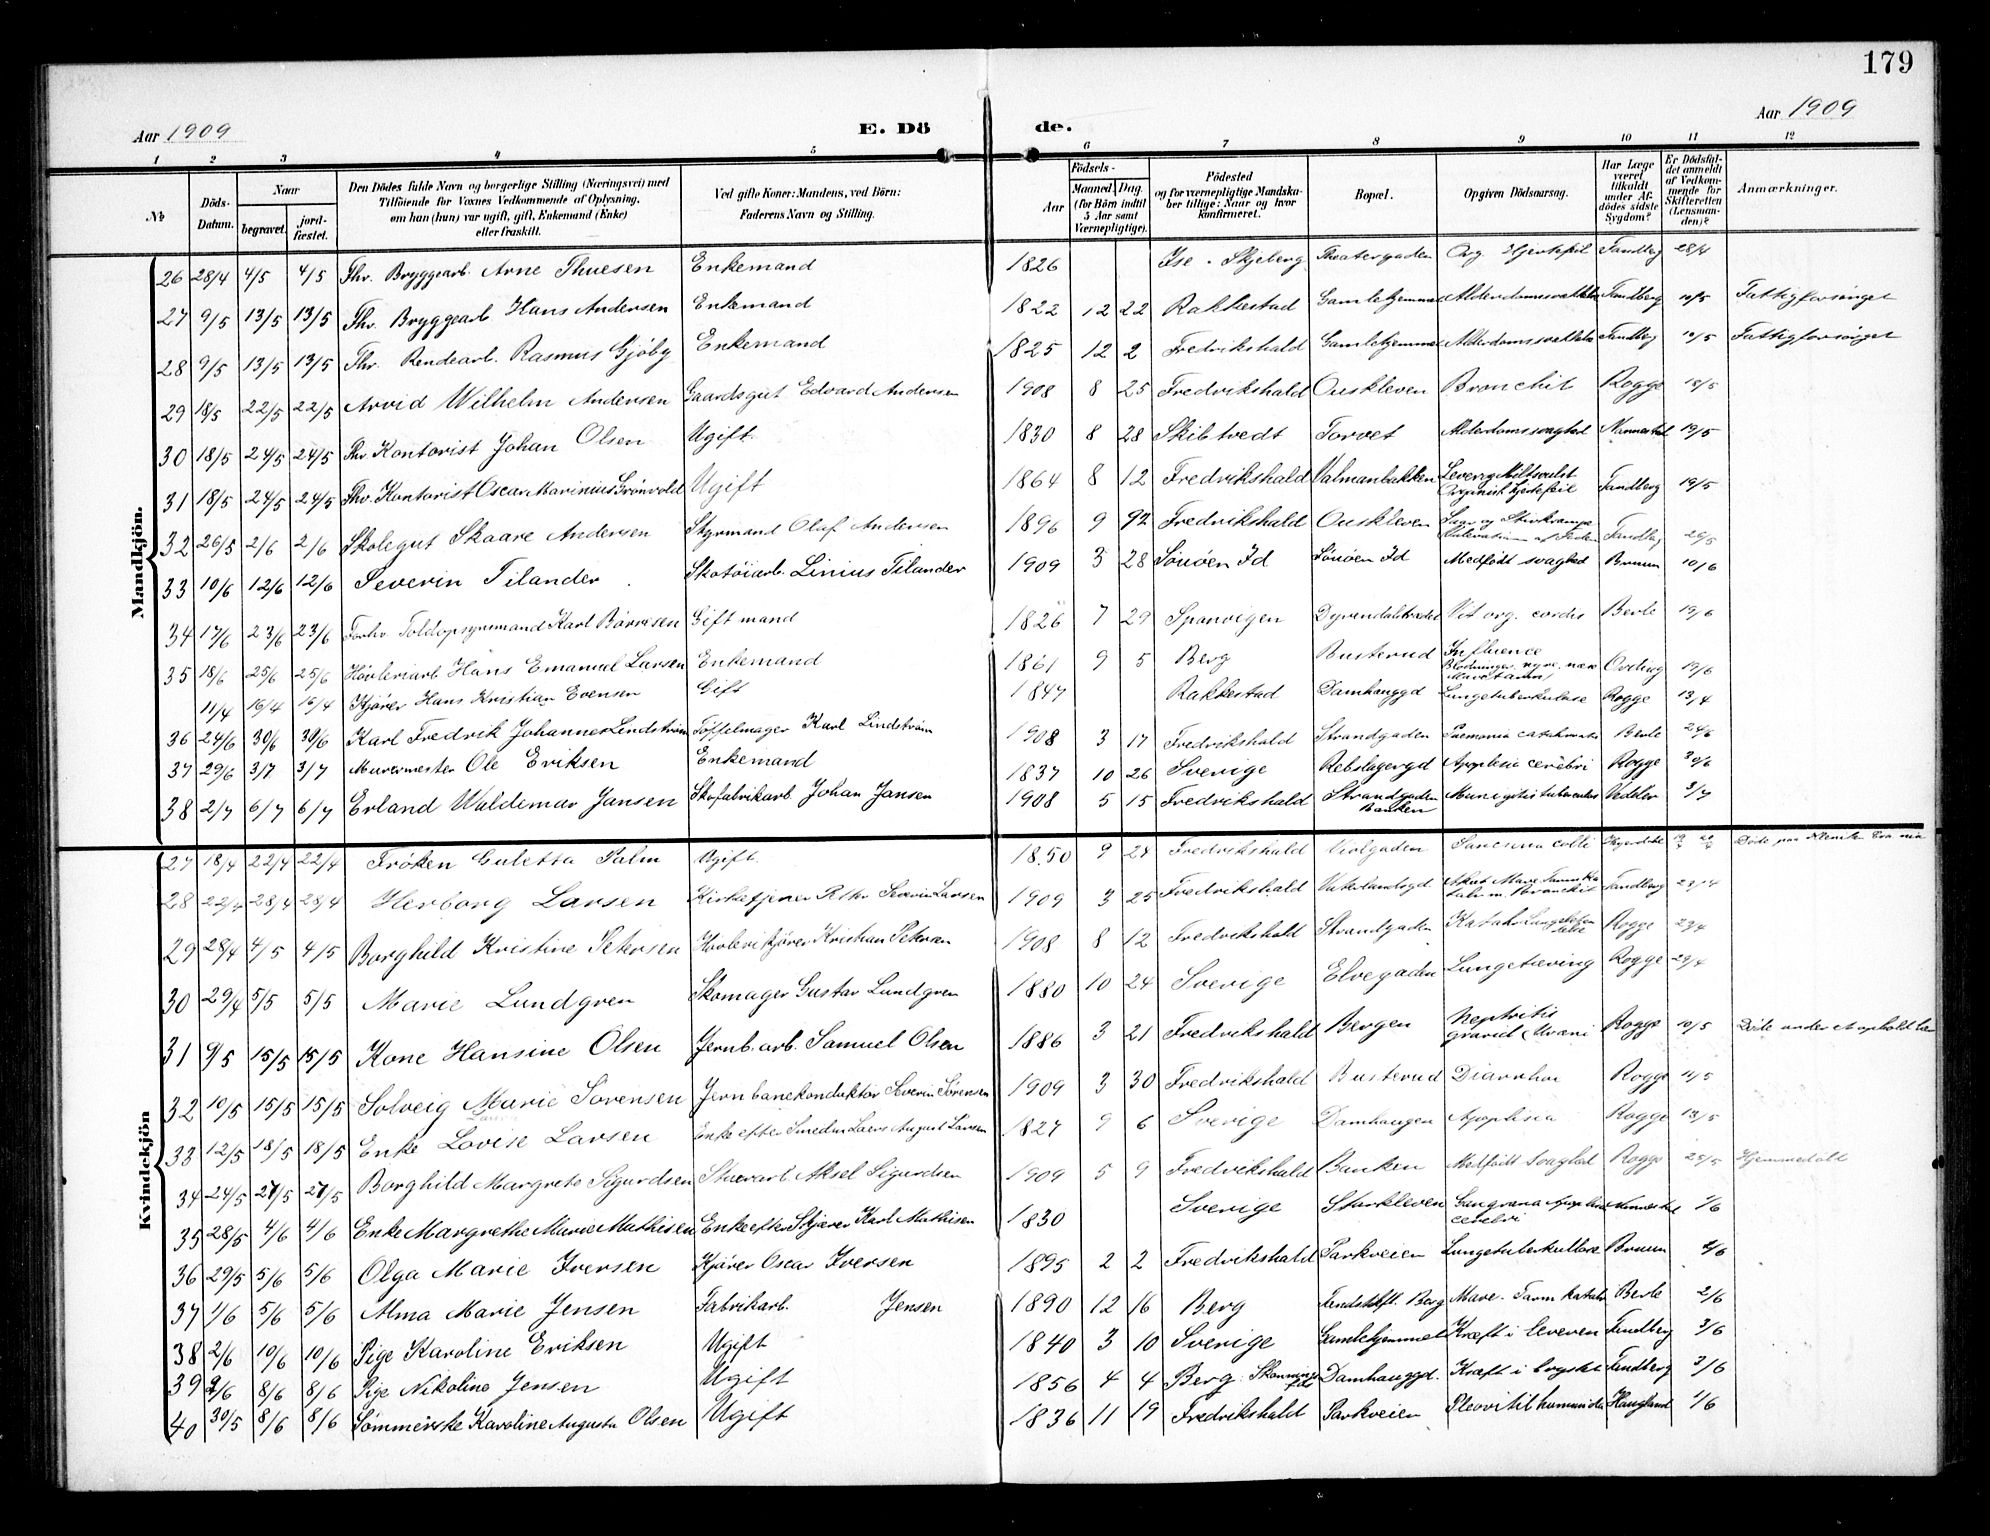 179
Aar 1909
E. Dö
de.
Aar 1909
1 2 3 4 5 6 7 8 9 10 11 12
No
Döds-Datum.
Naar
begravet.
jord-fæstet.
Den Dödes fulde Navn og borgerlige Stilling (Næringsvei) med Tilföiende for Voxnes Vedkommende af Oplysning, om han (hun) var ugift, gift, Enkemand (Enke) eller fraskilt.
Ved gifte Koner: Mandens, ved Börn: Faderens Navn og Stilling.
Födsels-
Aar
Maaned Dag.
(for Börn indtil 5 Aar samt Værnepligtige).
Födested og for værnepligtige Mandskaber tillige: Naar og hvor konfirmeret.
Bopæl.
Opgiven Dödsaarsag.
Har Læge været tilkaldt under Afdödes sidste Sygdom?
Er Dödsfaldet anmeldt af Vedkommende for Skifteretten (Lensmanden)?
Anmærkninger.
Mandkjön.
26 28/4 4/5 4/5 Fhv. Bryggearb. Arne Thuesen Enkemand 1826 Ise - Skjeberg Theatergaden Org. Hjertefeil Tandberg 28/4
27 9/5 13/5 13/5 Fhv. Bryggearb. Hans Andersen Enkemand 1822 12 22 Rakkestad Gamlehjemmet Tandberg 10/5 Fattigforsörget
28 9/5 13/5 13/5 Fhv. Rendearb. Rasmus Gjöby Enkemand 1825 12 2 Fredrikshald Gamlehjemmet Tandberg 10/5 Fattigforsörget
29 18/5 22/5 22/5 Arvid Wilhelm Andersen Gaardsgut Edvard Andersen 1908 8 25 Fredrikshald Ouskleven Bronchit Rogge 18/5
30 18/5 24/5 24/5 Fhv. Kontorist Johan Olsen Ugift. 1830 8 28 Skibtvedt Torvet Alderdomssvaghed 19/5
31 18/5 24/5 24/5 Fhv. Kontorist Oscar Marinius Grönvold Ugift 1864 8 12 Fredrikshald Valmanbakken Lever og Miltsvulst Organisk Hjertefeil Tandberg 19/5
32 26/5 2/6 2/6 Skolegut Skaare Andersen Styrmand Olaf Andersen 1896 9 Fredrikshald Ouskleven Tandberg 26/5
33 10/6 12/6 12/6 Severin Tilander Skotöiarb. Linius Tilander 1909 3 28 Sönöen Id Sönöen Id Medfödt svaghed Bruun 10/6
34 17/6 23/6 23/6 Forhv. Toldopsynsmand Karl Börresen Gift mand 1826 7 29 Sponvigen Vit. org. cordis Berle 19/6
35 18/6 25/6 25/6 Hövleriarb Hans Emanuel Larsen Enkemand 1861 9 5 Berg Busterud 19/6
11/4 16/4 16/4 Kjörer Hans Kristian Evensen Gift 1847 Rakkestad Damhauggd Lungetuberkulose Rogge 13/4
36 24/6 30/6 30/6 Karl Fredrik Johannes Lindström Töffelmager Karl Lindström 1908 3 17 Fredrikshald Strandgaden Berle 24/6
37 29/6 3/7 3/7 Murermester Ole Eriksen Enkemand 1837 10 26 Sverige Rebslagergd Apoplexia cerebri Rogge 30/6
38 2/7 6/7 6/7 Erland Waldemar Jansen Skofabrikarb. Johan Jansen 1908 5 15 Fredrikshald Strandgaden Banken Vedeler 3/7
Kvindekjön
27 18/4 22/4 22/4 Fröken Guletta Palm Ugift. 1850 9 24 Fredrikshald Violgaden
28 22/4 28/4 28/4 Herborg Larsen Kirketjener Severin Larsen 1909 3 25 Fredrikshald Tandberg 23/4
29 28/4 4/5 4/5 Borghild Kristine Petersen Kristian Petersen 1908 8 12 Fredrikshald Strandgaden Rogge 29/4
30 29/4 5/5 5/5 Marie Lundgren Skomager Gustav Lundgren 1880 10 24 Sverige Elvegaden Lungetæring Rogge 29/4
31 9/5 15/5 15/5 Kone Hansine Olsen Jernb. arb. Samuel Olsen 1886 3 21 Fredrikshald Bergen Nephritis Rogge 10/5 Döde under et ophold
32 10/5 15/5 15/5 Solveig Marie Sörensen Jernbanekonduktör Severin Sörensen 1909 3 30 Fredrikshald Busterud Diarrhoe Rogge 11/5
33 12/5 18/5 18/5 Enke Lovise Larsen Enke efter Smed Lars August Larsen 1827 9 6 Sverige Damhaugen Apoplexia Rogge 13/5
34 24/5 27/5 27/5 Borghild Margrete Sigurdsen Stuerarb. Aksel Sigurdsen 1909 5 9 Fredrikshald Banken Medfödt Svaghed Rogge 25/5 Hjemmedöbt
35 28/5 4/6 4/6 Enke Margrethe Marie Mathisen Enke efter Karl Mathisen 1830 Sverige Storkleven Gangræna Apoplexia cerebri 1/6
36 29/5 5/6 5/6 Olga Marie Iversen Kjörer Oscar Iversen 1895 2 2 Fredrikshald Parkveien Lungetuberkullose Bruun
37 1/6 5/6 5/6 Alma Marie Jensen Fabrikarb. Jensen 1890 12 16 Berg Berg Mave-Tarm katarr Berle 2/6
38 2/6 10/6 10/6 Pige Karoline Eriksen Ugift 1840 3 10 Sverige Gamlehjemmet Kræft i leveren Tandberg 3/6
39 2/6 8/6 8/6 Pige Nikoline Jensen Ugift 1856 4 4 Berg Damhauggd. Kræft i brystet Tandberg 3/6
40 30/5 8/6 8/6 Karoline Augusta Olsen Ugift 1836 11 19 Fredrikshald Parkveien Haugland 1/6